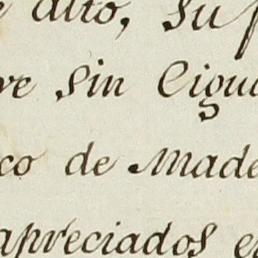 alto, su
sin Cigu
co de Made
apreciados e